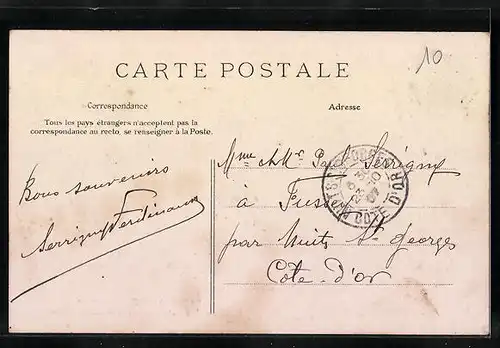 10
CARTE POSTALE
Correspondance
Adresse
Tous les pays étrangers n'acceptent pas la
correspondance au recto, se renseigner à la Poste.
Bons souvenirs
Serrigny Ferdinand
Mme Paul Serrigny
à Fussey
par Nuits St Georges
Côte-d'or
CÔTE D'OR